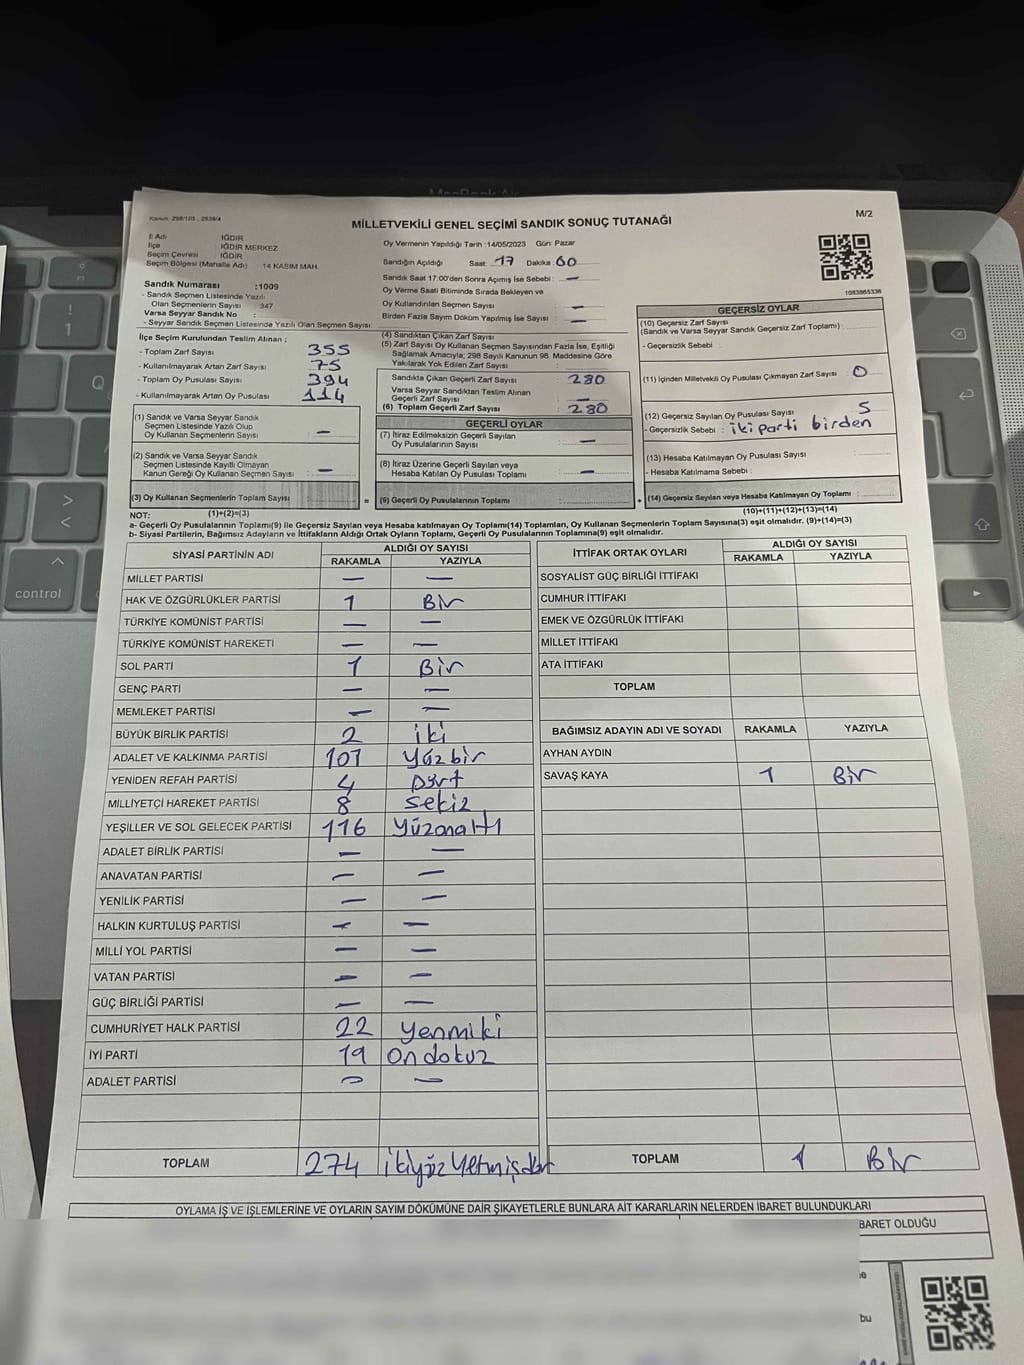 MacBook Air
Kanun: 298/105 , 2839/4
MİLLETVEKİLİ GENEL SEÇİMİ SANDIK SONUÇ TUTANAĞI
M/2
İl Adı : IĞDIR
İlçe : IĞDIR MERKEZ
Seçim Çevresi : IĞDIR
Seçim Bölgesi (Mahalle Adı) : 14 KASIM MAH.
Sandık Numarası :1009
- Sandık Seçmen Listesinde Yazılı
Olan Seçmenlerin Sayısı : 347
Varsa Seyyar Sandık No :
- Seyyar Sandık Seçmen Listesinde Yazılı Olan Seçmen Sayısı:
Oy Vermenin Yapıldığı Tarih :14/05/2023 Gün: Pazar
Sandığın Açıldığı Saat: 17 Dakika: 00
Sandık Saat 17.00'den Sonra Açımış İse Sebebi : —
Oy Verme Saati Bitiminde Sırada Bekleyen ve
Oy Kullandırılan Seçmen Sayısı : —
Birden Fazla Sayım Döküm Yapılmış İse Sayısı : —
1083865336
İlçe Seçim Kurulundan Teslim Alınan ;
- Toplam Zarf Sayısı : 355
- Kullanılmayarak Artan Zarf Sayısı : 75
- Toplam Oy Pusulası Sayısı : 394
- Kullanılmayarak Artan Oy Pusulası : 114
(1) Sandık ve Varsa Seyyar Sandık
Seçmen Listesinde Yazılı Olup
Oy Kullanan Seçmenlerin Sayısı : —
(2) Sandık ve Varsa Seyyar Sandık
Seçmen Listesinde Kayıtlı Olmayan
Kanun Gereği Oy Kullanan Seçmen Sayısı : —
(3) Oy Kullanan Seçmenlerin Toplam Sayısı :
(4) Sandıktan Çıkan Zarf Sayısı :
(5) Zarf Sayısı Oy Kullanan Seçmen Sayısından Fazla İse, Eşitliği
Sağlamak Amacıyla; 298 Sayılı Kanunun 98. Maddesine Göre
Yakılarak Yok Edilen Zarf Sayısı :
Sandıkta Çıkan Geçerli Zarf Sayısı : 280
Varsa Seyyar Sandıktan Teslim Alınan
Geçerli Zarf Sayısı : —
(6) Toplam Geçerli Zarf Sayısı : 280
GEÇERLİ OYLAR
(7) İtiraz Edilmeksizin Geçerli Sayılan
Oy Pusulalarının Sayısı : —
(8) İtiraz Üzerine Geçerli Sayılan veya
Hesaba Katılan Oy Pusulası Toplamı : —
= (9) Geçerli Oy Pusulalarının Toplamı :
GEÇERSİZ OYLAR
(10) Geçersiz Zarf Sayısı
(Sandık ve Varsa Seyyar Sandık Geçersiz Zarf Toplamı) :
- Geçersizlik Sebebi :
(11) İçinden Milletvekili Oy Pusulası Çıkmayan Zarf Sayısı : 0
(12) Geçersiz Sayılan Oy Pusulası Sayısı : 5
- Geçersizlik Sebebi : iki parti birden
(13) Hesaba Katılmayan Oy Pusulası Sayısı :
- Hesaba Katılmama Sebebi :
+ (14) Geçersiz Sayılan veya Hesaba Katılmayan Oy Toplamı :
NOT: (1)+(2)=(3)
(10)+(11)+(12)+(13)=(14)
a- Geçerli Oy Pusulalarının Toplamı(9) ile Geçersiz Sayılan veya Hesaba katılmayan Oy Toplamı(14) Toplamları, Oy Kullanan Seçmenlerin Toplam Sayısına(3) eşit olmalıdır. (9)+(14)=(3)
b- Siyasi Partilerin, Bağımsız Adayların ve İttifakların Aldığı Ortak Oyların Toplamı, Geçerli Oy Pusulalarının Toplamına(9) eşit olmalıdır.
SİYASİ PARTİNİN ADI ALDIĞI OY SAYISI
RAKAMLA YAZIYLA
MİLLET PARTİSİ — —
HAK VE ÖZGÜRLÜKLER PARTİSİ 1 Bir
TÜRKİYE KOMÜNİST PARTİSİ — —
TÜRKİYE KOMÜNİST HAREKETİ — —
SOL PARTİ 1 Bir
GENÇ PARTİ — —
MEMLEKET PARTİSİ — —
BÜYÜK BİRLİK PARTİSİ 2 iki
ADALET VE KALKINMA PARTİSİ 101 Yüzbir
YENİDEN REFAH PARTİSİ 4 Dört
MİLLİYETÇİ HAREKET PARTİSİ 8 sekiz
YEŞİLLER VE SOL GELECEK PARTİSİ 116 Yüzonaltı
ADALET BİRLİK PARTİSİ — —
ANAVATAN PARTİSİ — —
YENİLİK PARTİSİ — —
HALKIN KURTULUŞ PARTİSİ — —
MİLLİ YOL PARTİSİ — —
VATAN PARTİSİ — —
GÜÇ BİRLİĞİ PARTİSİ — —
CUMHURİYET HALK PARTİSİ 22 Yenmiki
İYİ PARTİ 19 on dokuz
ADALET PARTİSİ — —
TOPLAM 274
İTTİFAK ORTAK OYLARI ALDIĞI OY SAYISI
RAKAMLA YAZIYLA
SOSYALİST GÜÇ BİRLİĞİ İTTİFAKI
CUMHUR İTTİFAKI
EMEK VE ÖZGÜRLÜK İTTİFAKI
MİLLET İTTİFAKI
ATA İTTİFAKI
TOPLAM
BAĞIMSIZ ADAYIN ADI VE SOYADI RAKAMLA YAZIYLA
AYHAN AYDIN
SAVAŞ KAYA 1 Bir
TOPLAM 1 Bir
OYLAMA İŞ VE İŞLEMLERİNE VE OYLARIN SAYIM DÖKÜMÜNE DAİR ŞİKAYETLERLE BUNLARA AİT KARARLARIN NELERDEN İBARET BULUNDUKLARI
BARET OLDUĞU
bu
control
Q
1